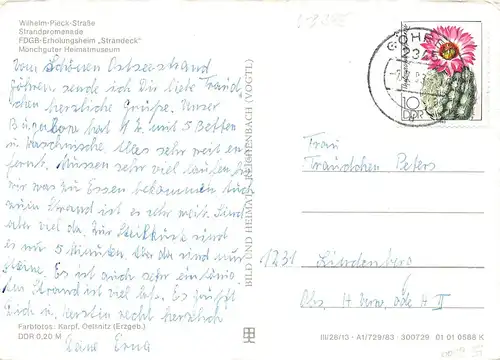 Wilhelm-Pieck-Straße
Strandpromenade
FDGB-Erholungsheim „Strandeck“
Mönchguter Heimatmuseum
Vom schönen Ostseestrand
Göhren, sende ich Dir liebe Traud
chen herzliche Grüße. Unser
Bungalow hat 2 mit 5 Betten
u. Waschnische. Alles sehr weit en
fernt. Müssen sehr viel laufen
wir was zu Essen bekommen
zum Strand ist es sehr weit. Sind
aber viel da. Zur Steilküste sind
es nur 5 Minuten. Da sind nur
Steine. Es ist auch sehr
Am Strand ist viel los. Es grüßt
Dich u. Kerstin recht herzlich
Deine Erna
Farbfotos: Karpf, Oelsnitz (Erzgeb.)
DDR 0,20 M
BILD UND HEIMAT REICHENBACH (VOGTL)
GÖHREN
10
DDR
Frau
Traudchen Peters
1231 Lindenberg
III/28/13 · A1/729/83 · 300729 01 01 0568 K